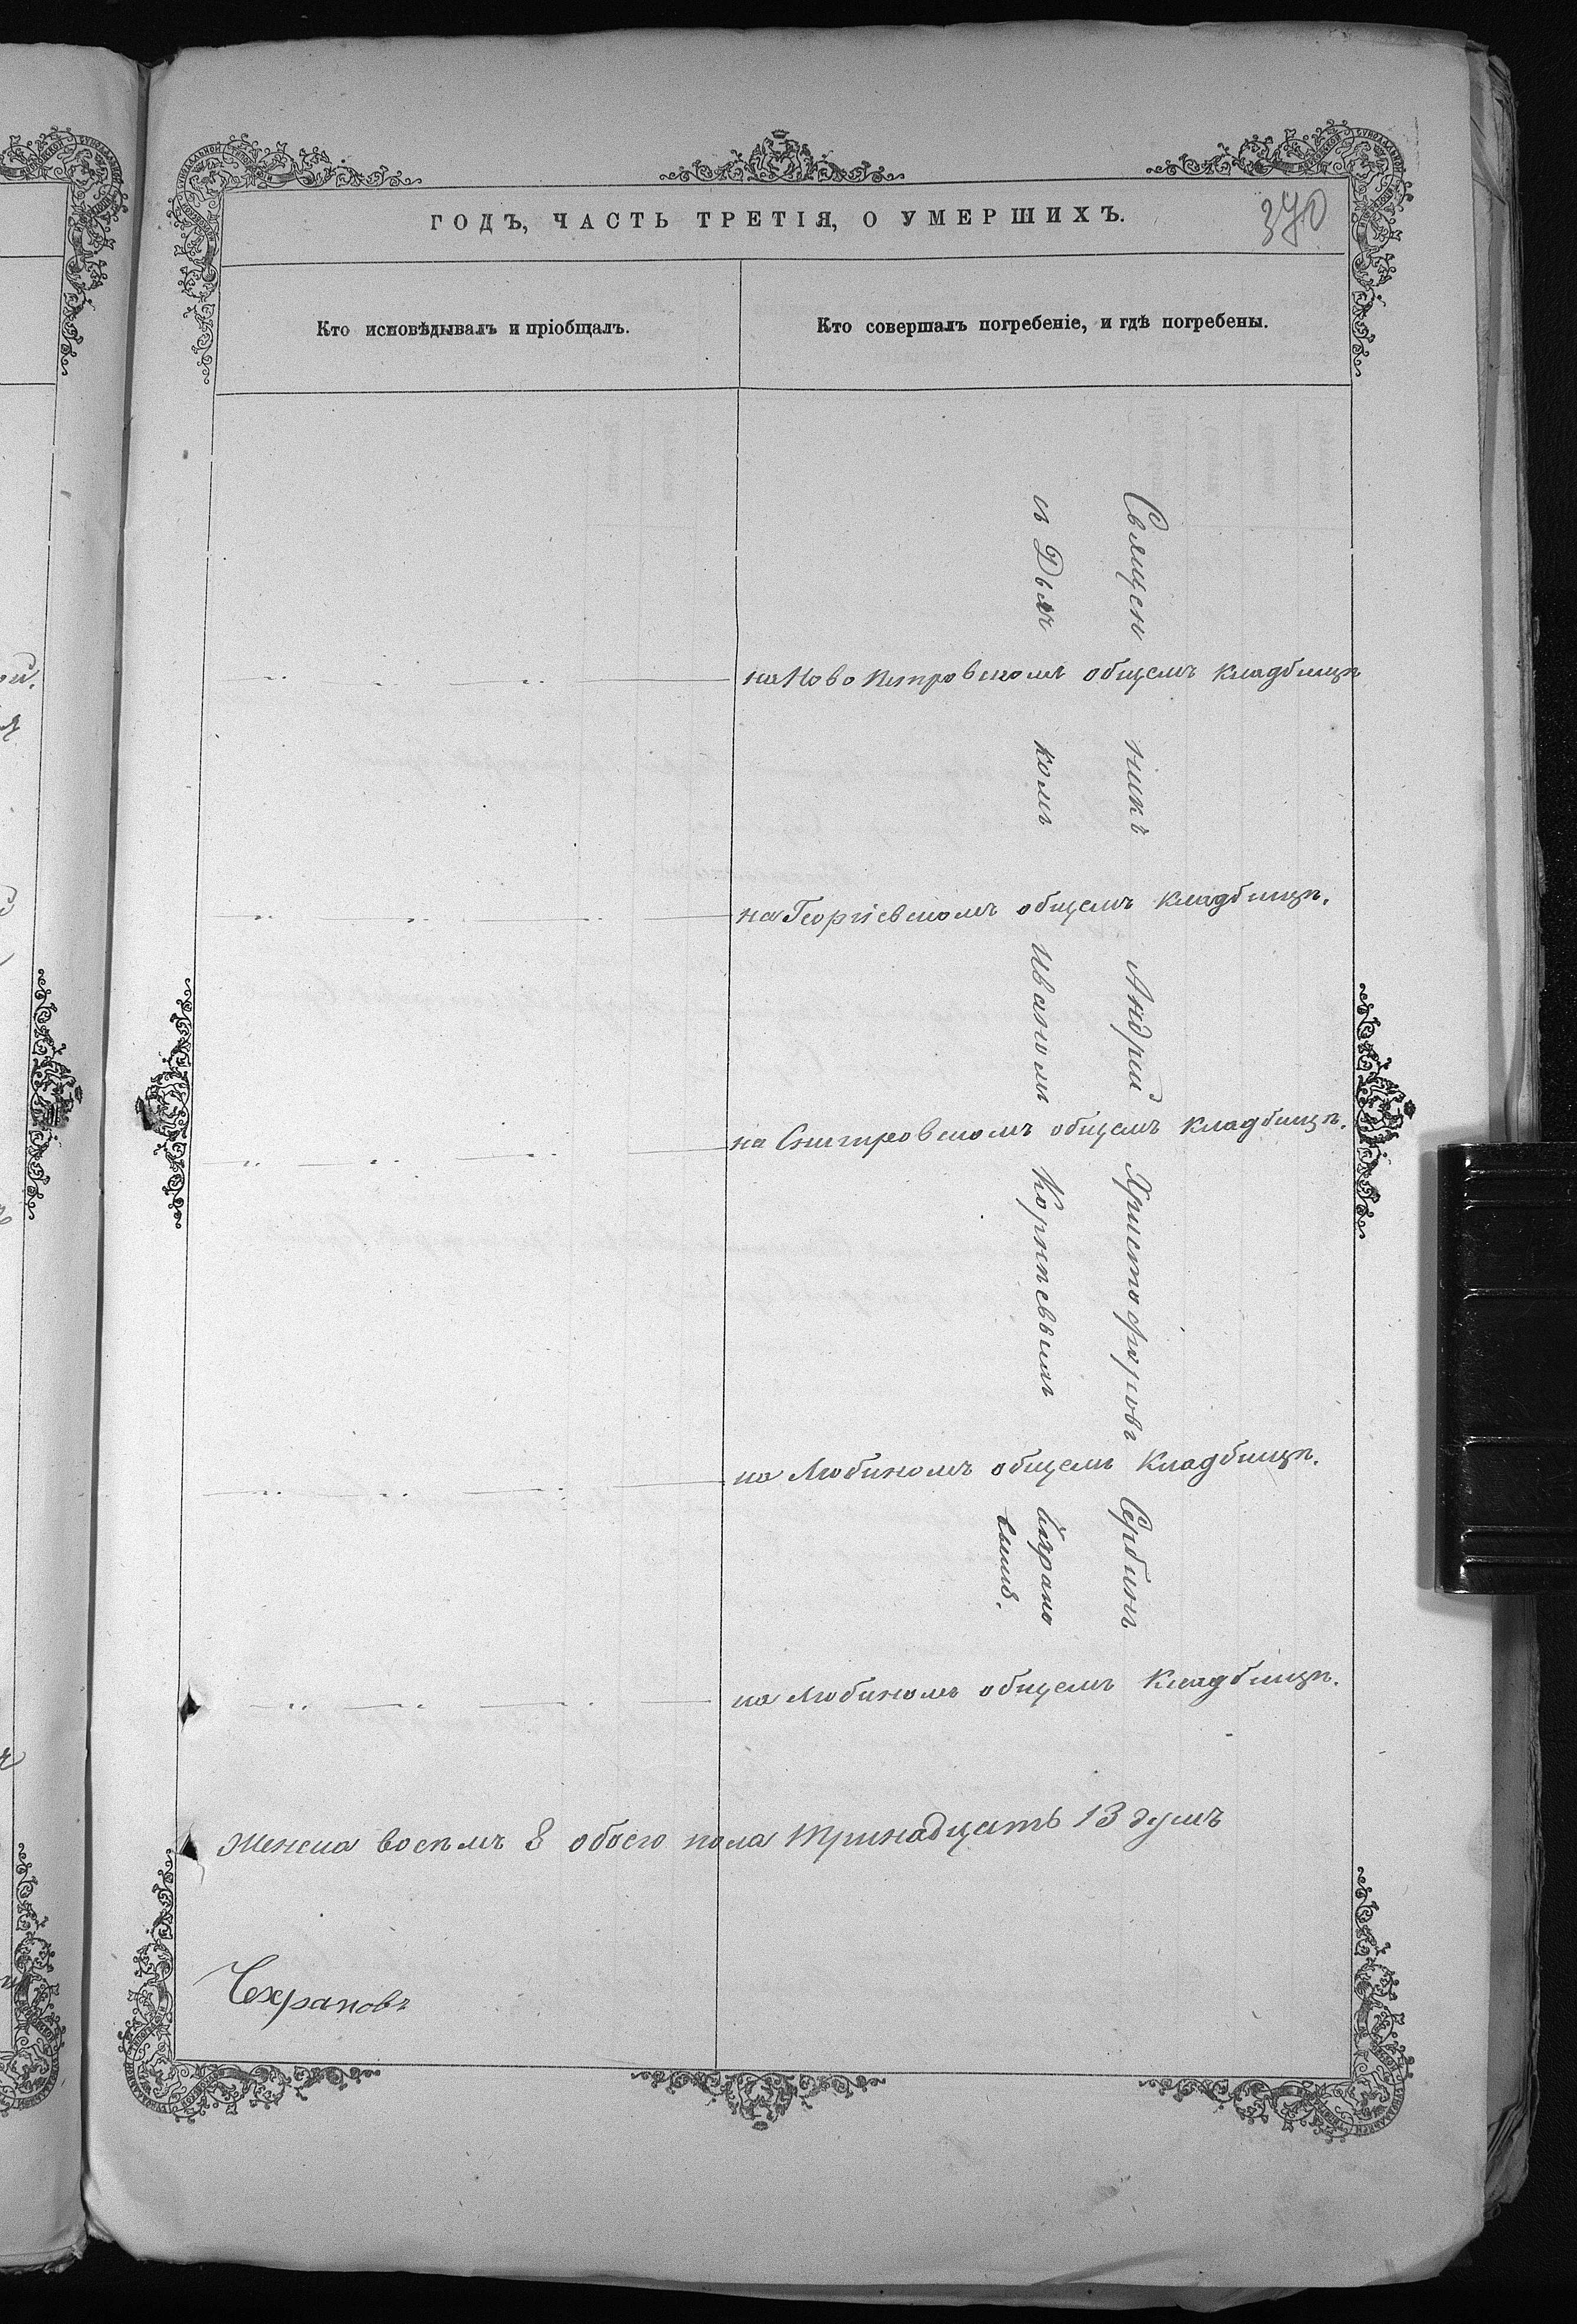 ГОДЪ, ЧАСТЬ ТРЕТІЯ, О УМЕРШИХЪ.
370
Кто исповѣдывалъ и пріобщалъ.
Кто совершалъ погребеніе, и гдѣ погребены.
Священникъ Андрей Христофоровъ Сербинъ
съ Дьячкомъ Иваномъ Корнѣевымъ
на Ново Петровскомъ общемъ кладбищѣ
на Георгіевскомъ общемъ кладбищѣ.
на Снигиревскомъ общемъ кладбищѣ.
на Любиномъ общемъ кладбищѣ.
на Любиномъ общемъ кладбищѣ.
Женска восемъ 8 обоего пола тринадцать 13 душъ